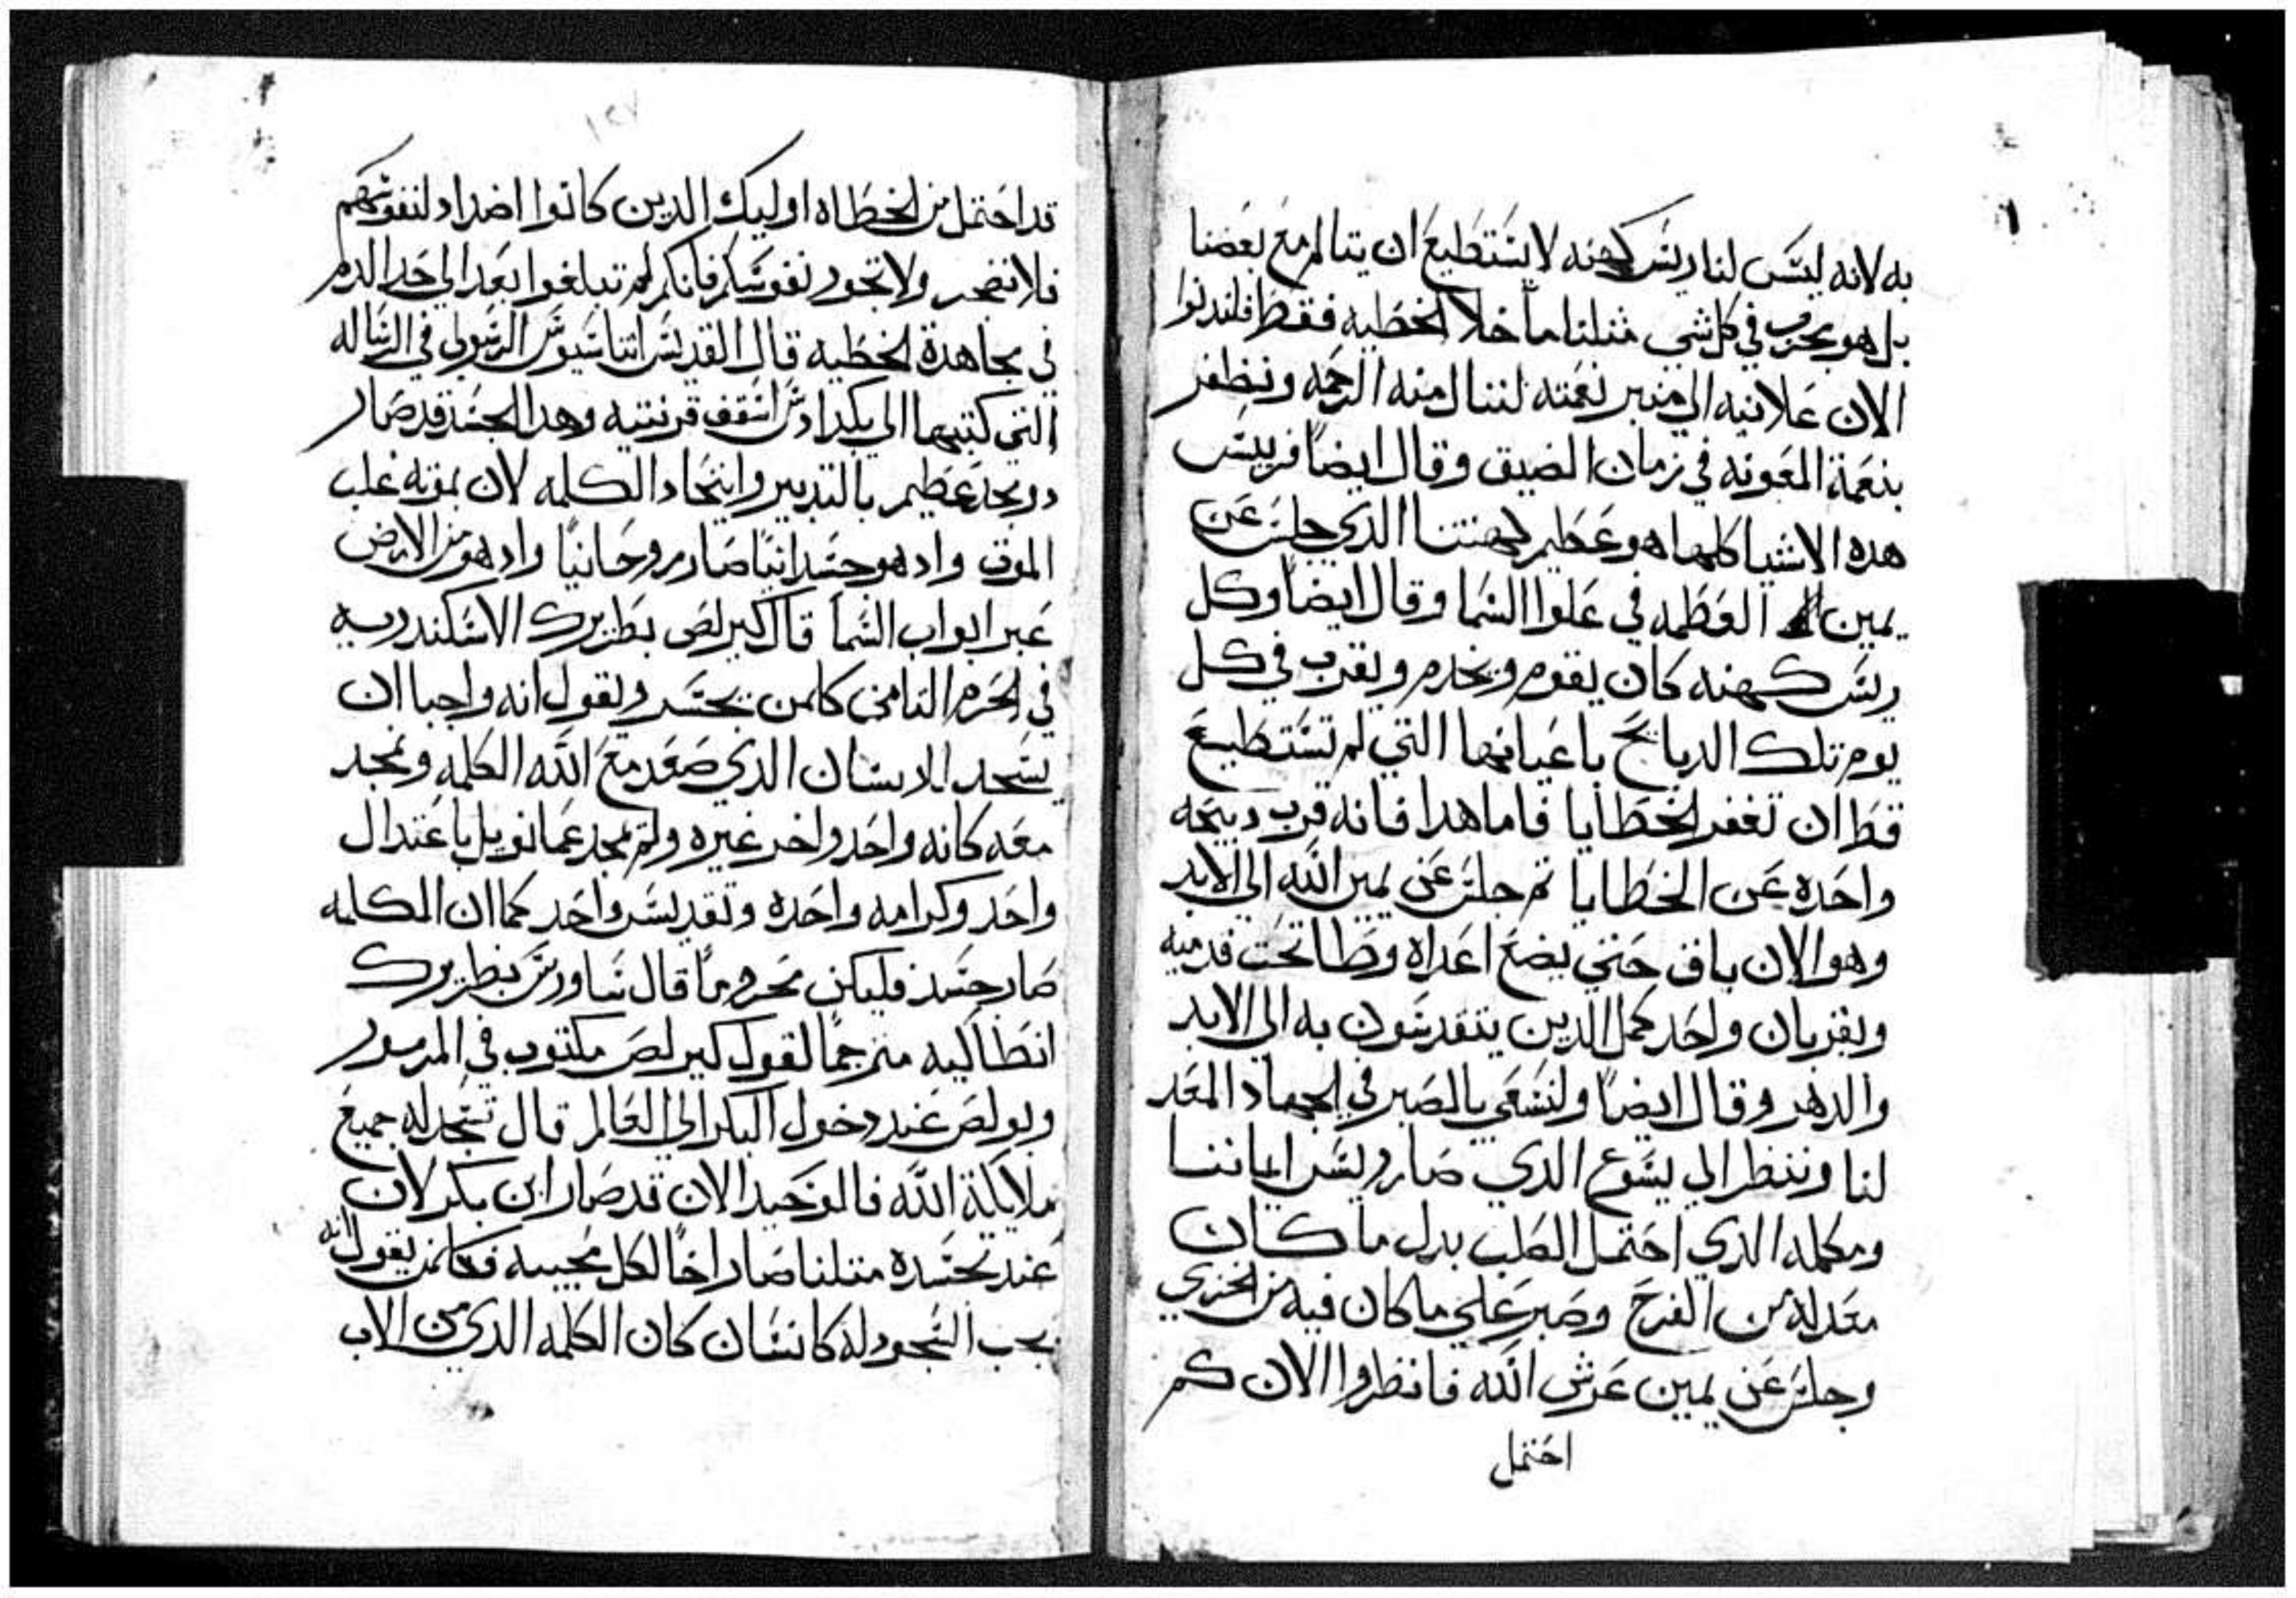 به لانه ليس لنا ريس كهنه لا يستطيع ان يتالم مع بعضنا
بل هو مجرب في كل شي مثلنا ما خلا الخطيه فقط فلندنوا
الان علانيه الي منبر نعمته لننال منه الرحمه ونظفر
بنعمة المعونه في زمان الضيق وقال ايضاً فريس
هده الاشيا كلها هو عظيم كهنتنا الدي جلس عن
يمين العظمه في علوا السما وقال ايضاً وكل
ريس كهنه كان يقوم ويخدم ويقرب في كل
يوم تلك الدبايح باعيانها التي لم تستطيع
قط ان تغفر الخطايا فاما هدا فانه قرب دبيحه
واحده عن الخطايا تم جلس عن يمين الله الي الابد
وهو الان باق حتي يضع اعداه وطا تحت قدميه
وبقربان واحد كمل الدين يتقدسون به الي الابد
والدهر وقال ايضاً ولنسعي بالصبر في الجهاد المعد
لنا وننظر الي يسوع الدي صار ريس ايماننا
ومكمله الدي احتمل الصلب بدل ما كان
معد له من الفرح وصبر علي ما كان فيه من الخزي
وجلس عن يمين عرش الله فانظروا الان كم
احتمل
١٢٧
قد احتمل من الخطاه اوليك الدين كانوا اضداد لنفوسهم
فلا تضجر ولا تخور نفوسكم فانكم لم تبلغوا بعد الي حد الدم
في مجاهدة الخطيه قال القديس اتناسيوس الرسولي في الرساله
التي كتبها الي بكدادس اسقف قرنتيه وهدا الجسد قد صار
دو مجد عظيم بالتدبير واتحاد الكلمه لان بموته غلب
الموت واد هو جسدانياً صار روحانياً واد هو من الارض
عبر ابواب السما قال كيرلص بطريرك الاسكندريه
في الحرم التامن كلمن يجسر ويقول انه واجبا ان
يسجد للانسان الدي صعد مع الله الكلمه ونمجد
معه كانه واحد واخر غيره ولم يمجد عمانويل باعتدال
واحد وكرامه واحده وتقديس واحد كما ان الكلمه
صار جسد فليكن محروماً قال ساورس بطريرك
انطاكيه مترجماً لقول كيرلص مكتوب في المزمور
وبولص عند دخول البكر الي العالم قال تسجد له جميع
ملايكة الله فالوحيد الان قد صار ابن بكر لان
عند تجسده متلنا صار اخاً لكل محبيه فكلمن يقول انه
يجب السجود له كانسان كان الكلمه الدي من الاب